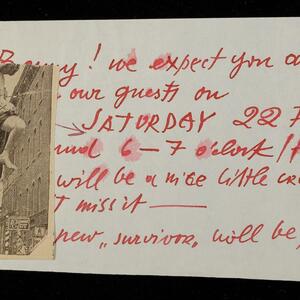 ! we expect you a
our guests on
SATURDAY 22
6-7 o'clock /
will be a nice little cr
t miss it —
new „survivor„ will be,